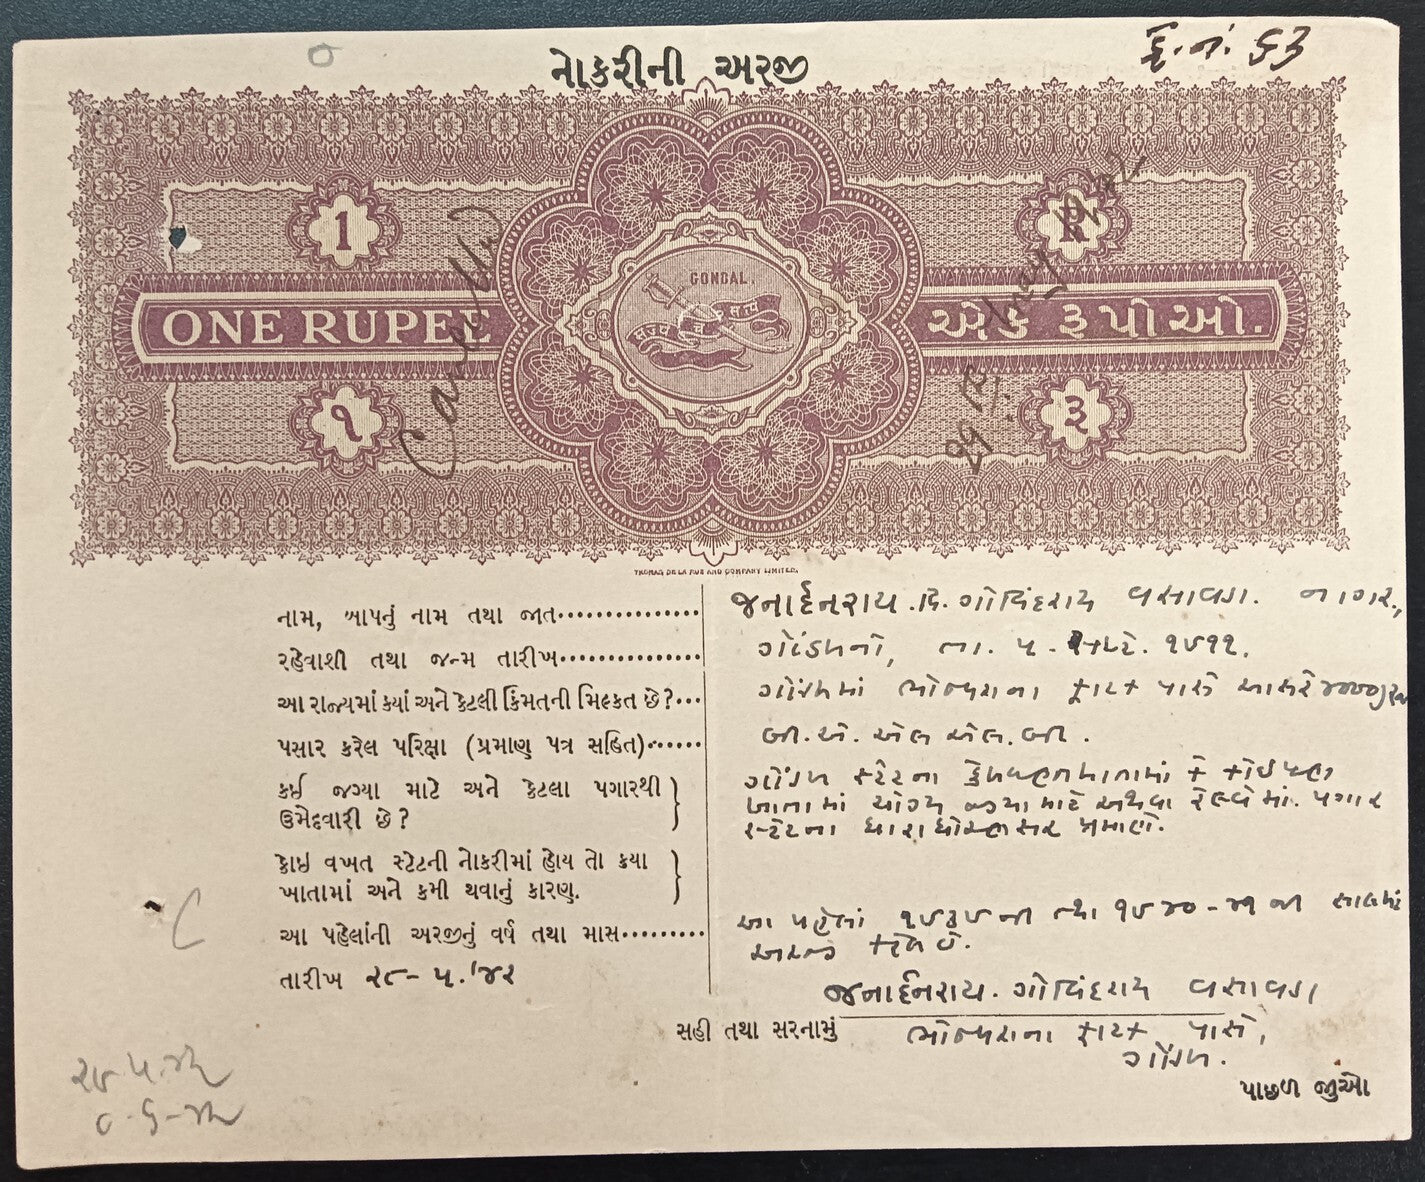 નોકરીની અરજી
ફ. નં. ૬૩
1
R
GONDAL.
ONE RUPEE
એક રૂપીઓ.
૧
રૂ
Cancelled
29 May 1942
THOMAS DE LA RUE AND COMPANY LIMITED.
નામ, બાપનું નામ તથા જાત
જનાર્દનરાય . વિ. ગોવિંદરાય વસાવડા. નાગર.,
રહેવાશી તથા જન્મ તારીખ
ગોંડલનો, તા. ૫ . ૧૯૧૧.
આ રાજ્યમાં ક્યાં અને કેટલી કિંમતની મિલ્કત છે?
ગોંડલમાં ભોજપરાના ફાટક પાસે આસરે
પસાર કરેલ પરિક્ષા (પ્રમાણ પત્ર સહિત)
બી. એ. એલ એલ. બી .
કઈ જગ્યા માટે અને કેટલા પગારથી
ઉમેદવારી છે?
ગોંડલ સ્ટેટના કેળવણીખાતામાં કે કોઈપણ
ખાતામાં યોગ્ય જગ્યા માટે અથવા રેલ્વેમાં. પગાર
સ્ટેટના ધારાધોરણસર પ્રમાણે.
કોઇ વખત સ્ટેટની નોકરીમાં હોય તો કયા
ખાતામાં અને કમી થવાનું કારણ.
આ પહેલાંની અરજીનું વર્ષ તથા માસ
આ પહેલાં ૧૯૩૯ની તથા ૧૯૪૦-૪૧ ની સાલમાં
અરજી કરેલ છે.
તારીખ ૨૮-૫.'૪૨
જનાર્દનરાય. ગોવિંદરાય વસાવડા
સહી તથા સરનામું
ભોજપરાના ફાટક પાસે,
ગોંડલ.
પાછળ જુઓ
૨૯.૫.૪૨